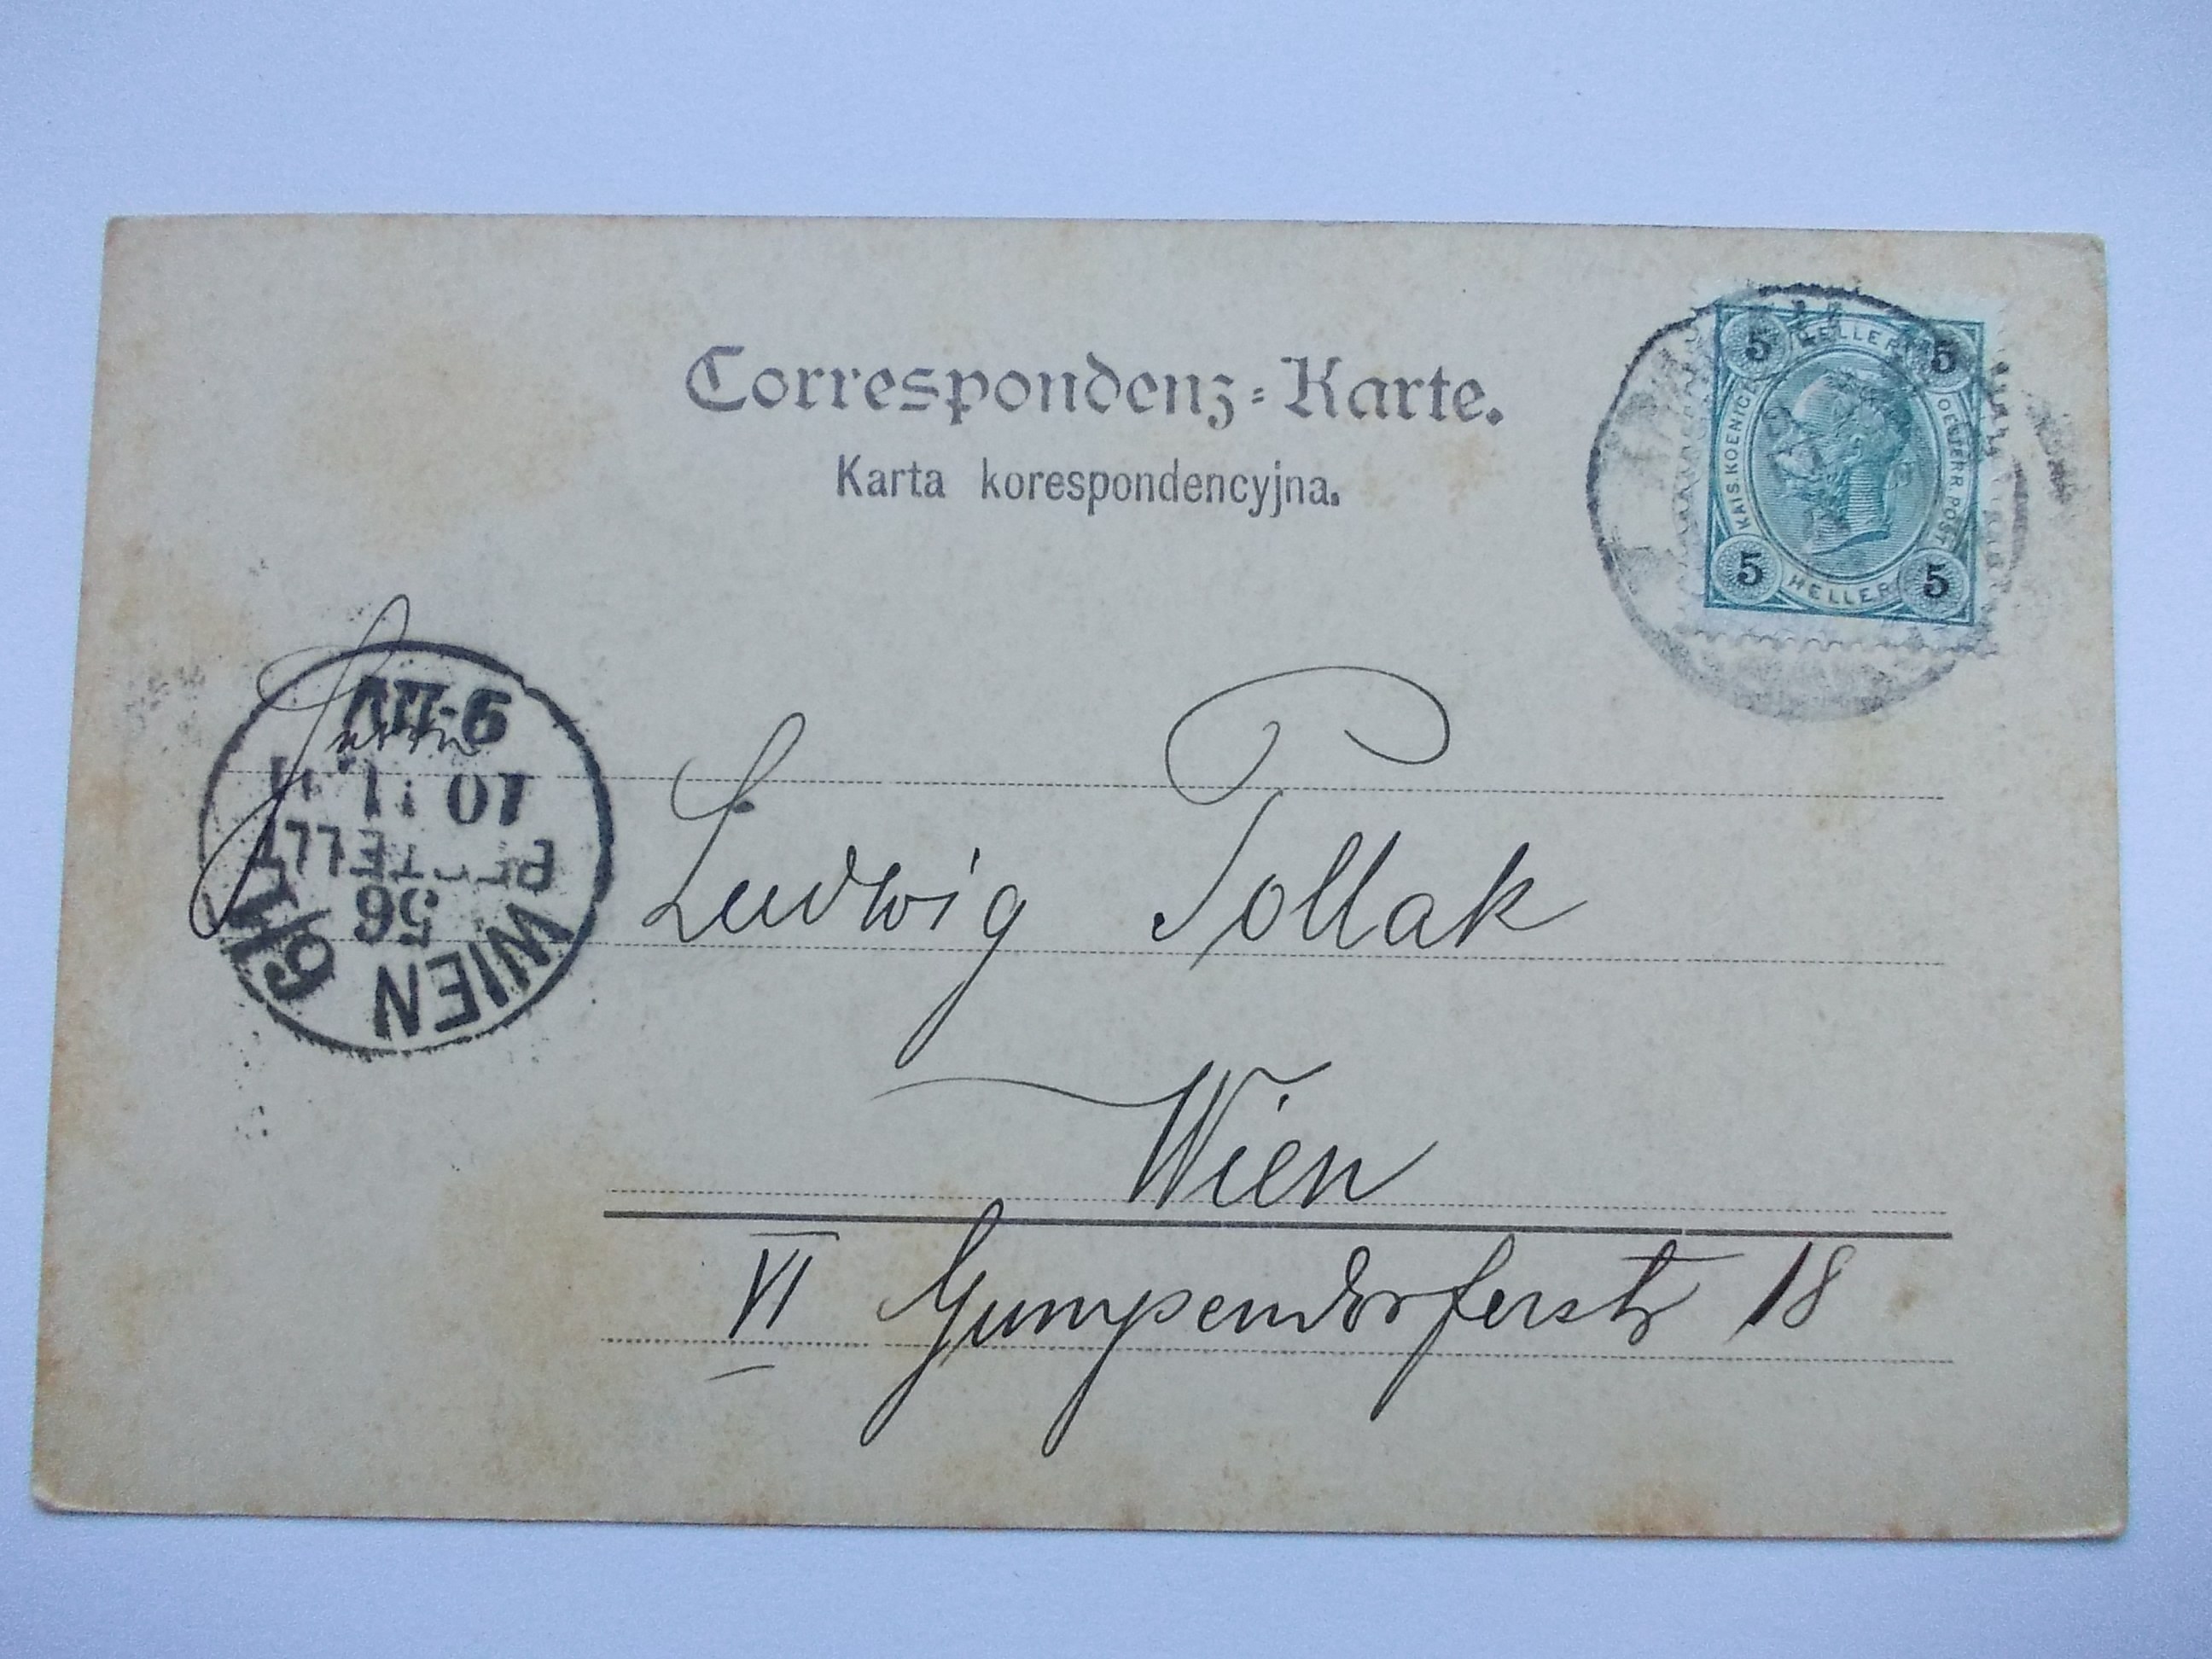 Correspondenz-Karte.
Karta korespondencyjna.
5 HELLER 5
KAIS. KOENIGL. OESTERR. POST
5 HELLER 5
Herrn
Ludwig Pollak
Wien
VI Gumpendorferstr 18
WIEN 6/1
56
BESTELLT
10
9·VII